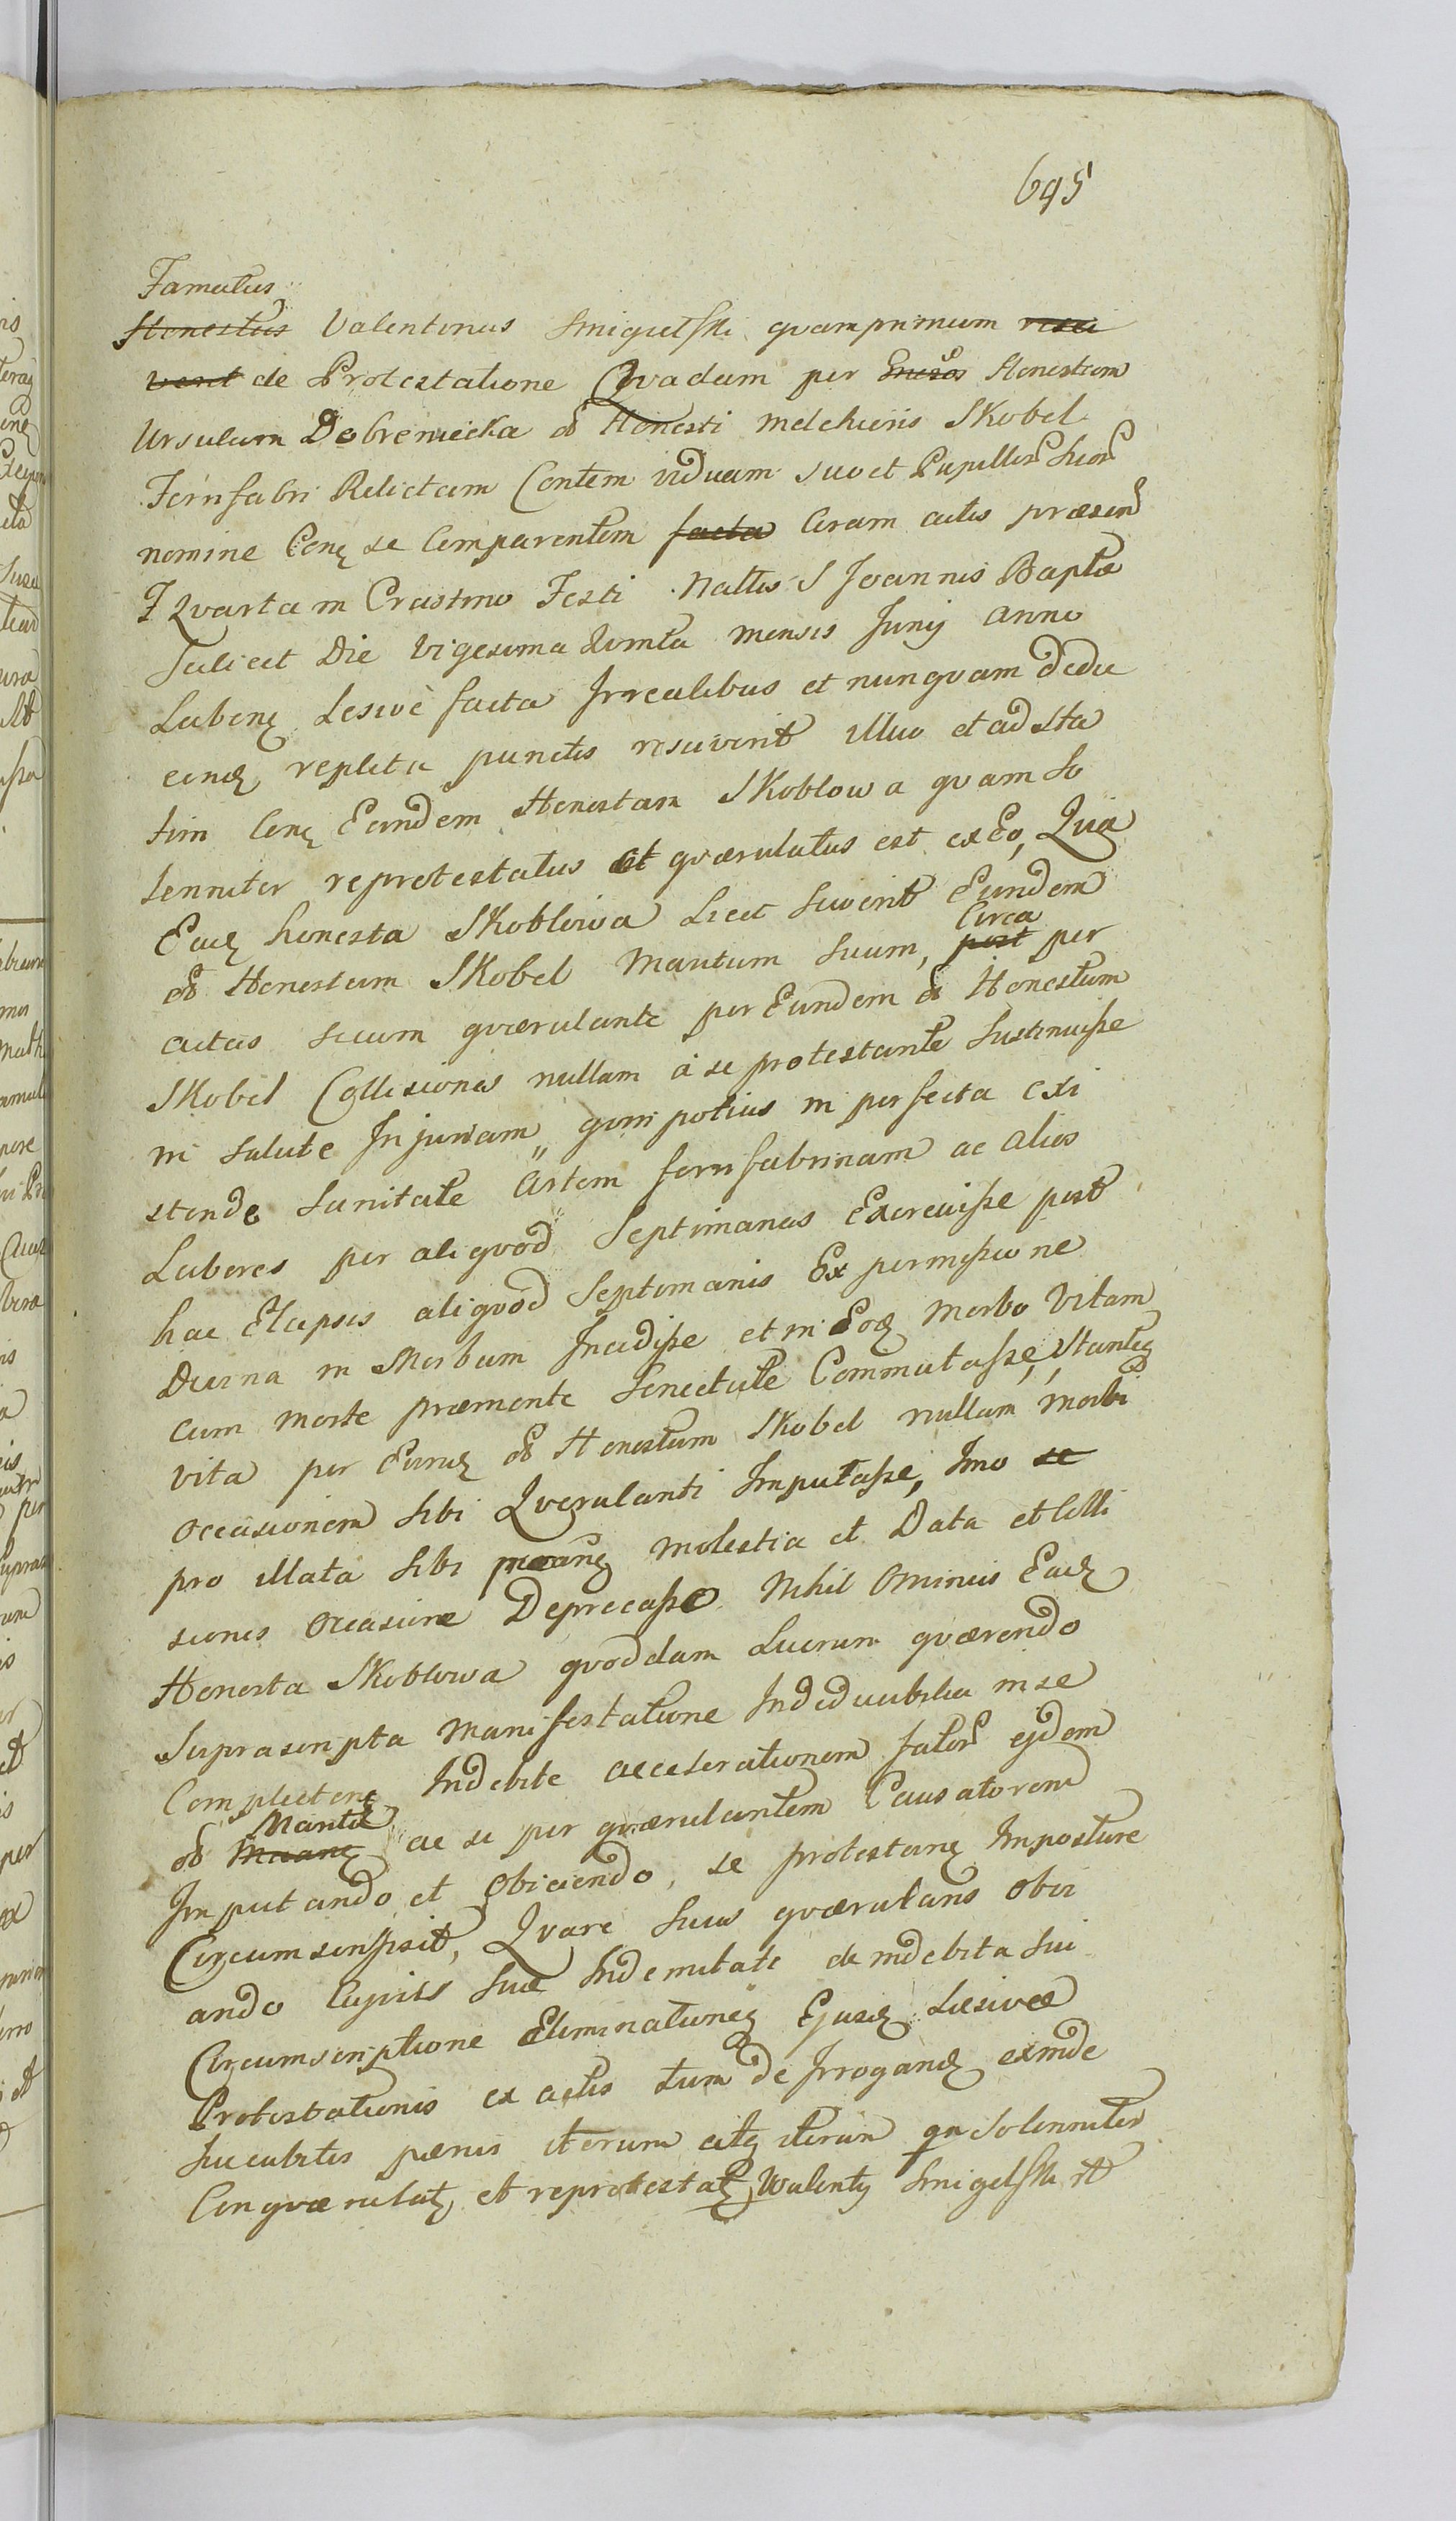 695
Famatus
Honestus Valentinus Smigielski quamprimum resci
verit de Protestatione Quadam per Honestam
Ursulam Dobreniecka os Honesti Melchioris Skobel
Ferrifabri Relictam Contem viduam suo et Pupillor Suor
nomine Conq se Comparentem facta Coram actis præsen
F Quartam Crastino Festi Nattis S Joannis Baptæ
Scilicet Die vigesima Quinta mensis Junij anno
Labenq Lesivè facta Irrealibus et nunquam dedu
cend repleta punctis resciverit illico et ad sta
tim Conq Eandem Honestam Skoblowa quam so
lenniter reprotestatus et quærulatus est ex Eo, Quia
Ead honesta Skoblowa Licet Sciverit Eundem
os Honestum Skobel Maritum Suum, post Circa per
actas secum quærulante per Eundem os Honestum
Skobel Collisiones nullam a se protestante Sustinuisse
in salute Injuriam, quin potius in perfecta exi
stendo Sanitate Artem ferrifabrinam ac alios
Labores per aliquod Septimanas Exercuisse post
hac Elapsis aliquod Septimanis Ex permissione
Divina in Morbum Incidisse et in Eod Morbo Vitam
cum morte præmente Senectute Commutasse, Stanteq
vita per Eund os Honestum Skobel nullam morbi
occasionem sibi Querulanti Imputasse, Imo se
pro illata sibi molestia et Data et Colli
sionis occasione Deprecasse Nihil Ominus Ead
Honesta Skoblowa quoddam Lucrum quærendo
Suprascripta Manifestatione Indeducibilia in se
Complecten Indebite accelerationem fator ejdem
os Mariti ac se per quærulantem Causatorem
Imputando et Obiciendo, se protestanq Imposture
Circumscripsit, Quare Suus quærulans obvi
ando Cupiens Suæ Indemnitati de indebita Sui
Circumscriptione Eliminationeq Ejusd Læsivæ
Protestationis ex actis tum de Irrogand exinde
Succubitis pænis iterum atq iterum qn Solenniter
Conquærulat, et reprotestat, Walenty Smigielski